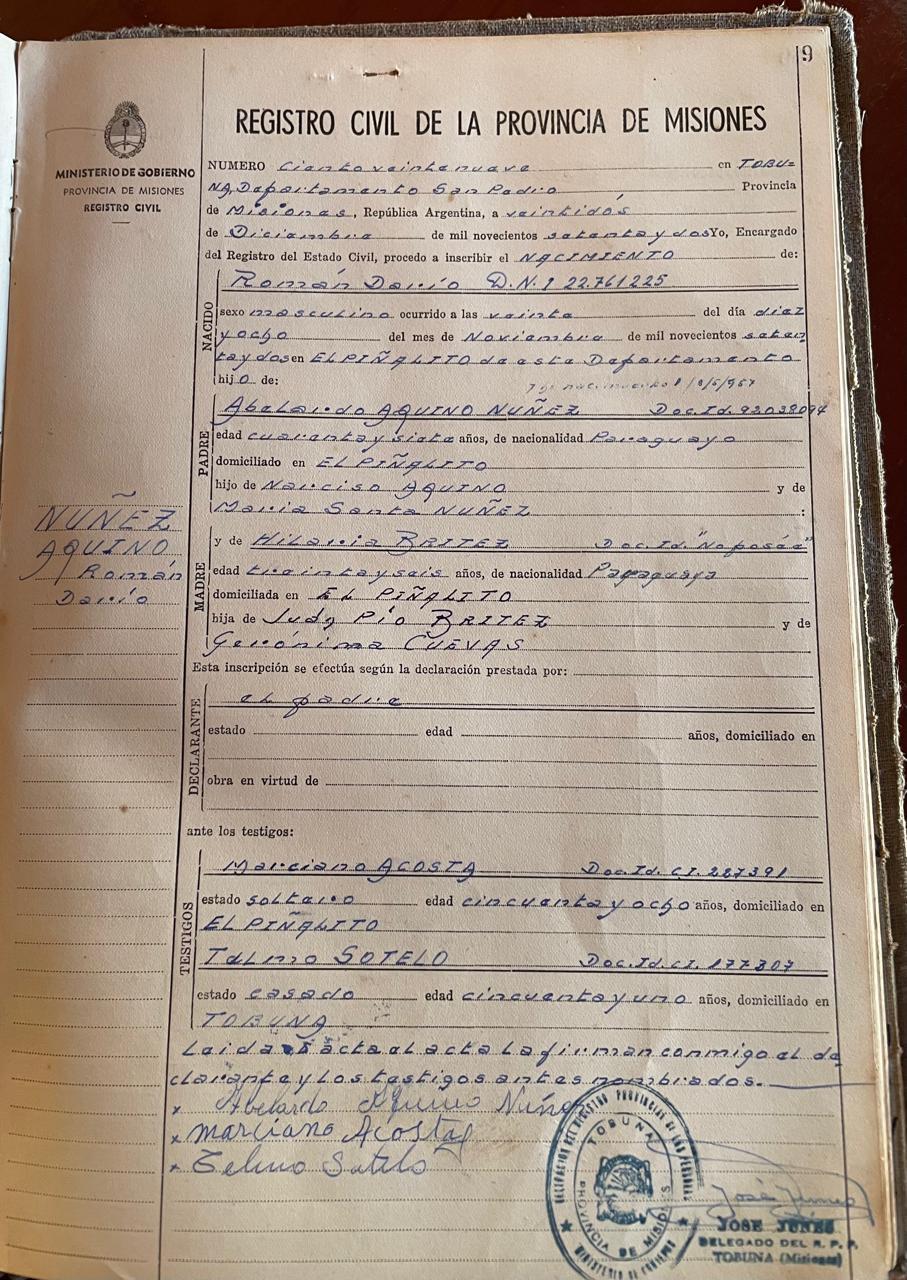 9
REGISTRO CIVIL DE LA PROVINCIA DE MISIONES
MINISTERIO DE GOBIERNO
PROVINCIA DE MISIONES
REGISTRO CIVIL
NUMERO Ciento veintenueve en TOBU=
NA, Departamento San Pedro Provincia
de Misiones, República Argentina, a veintidós
de Diciembre de mil novecientos setenta y dos Yo, Encargado
del Registro del Estado Civil, procedo a inscribir el NACIMIENTO de:
NACIDO
Román Darío D.N.I 22.761225
sexo masculino ocurrido a las veinte del día diez
y ocho del mes de Noviembre de mil novecientos seten
ta y dos en EL PIÑALITO de este Departamento
hijo de:
PADRE
Abelardo AQUINO NUÑEZ Doc.Id. 93038094
edad cuarenta y siete años, de nacionalidad Paraguayo
domiciliado en EL PIÑALITO
hijo de Narciso AQUINO y de
Maria Santa NUÑEZ :
NUÑEZ
AQUINO
Román
Darío
MADRE
y de Hilaria BRITEZ Doc.Id. "No posée"
edad treinta y seis años, de nacionalidad Paraguaya
domiciliada en EL PIÑALITO
hija de Judy Pío BRITEZ y de
Gerónima CUEVAS
Esta inscripción se efectúa según la declaración prestada por:
DECLARANTE
el padre
estado edad años, domiciliado en
obra en virtud de
ante los testigos:
TESTIGOS
Marciano ACOSTA Doc.Id. C.I. 227391
estado soltero edad cincuenta y ocho años, domiciliado en
EL PIÑALITO
Telmo SOTELO Doc.Id. C.I. 177307
estado casado edad cincuenta y uno años, domiciliado en
TOBUNA
Leida acta al acta la firman conmigo el de
clarante y los testigos antes nombrados.
x Abelardo Aquino Nuñez
x Marciano Acosta
x Telmo Sotelo
DELEGACION DEL REGISTRO PROVINCIAL DE LAS PERSONAS
TOBUNA
PROVINCIA DE MISIONES
MINISTERIO DE GOBIERNO
JOSE JUNES
DELEGADO DEL R. P. P.
TOBUNA (Misiones)